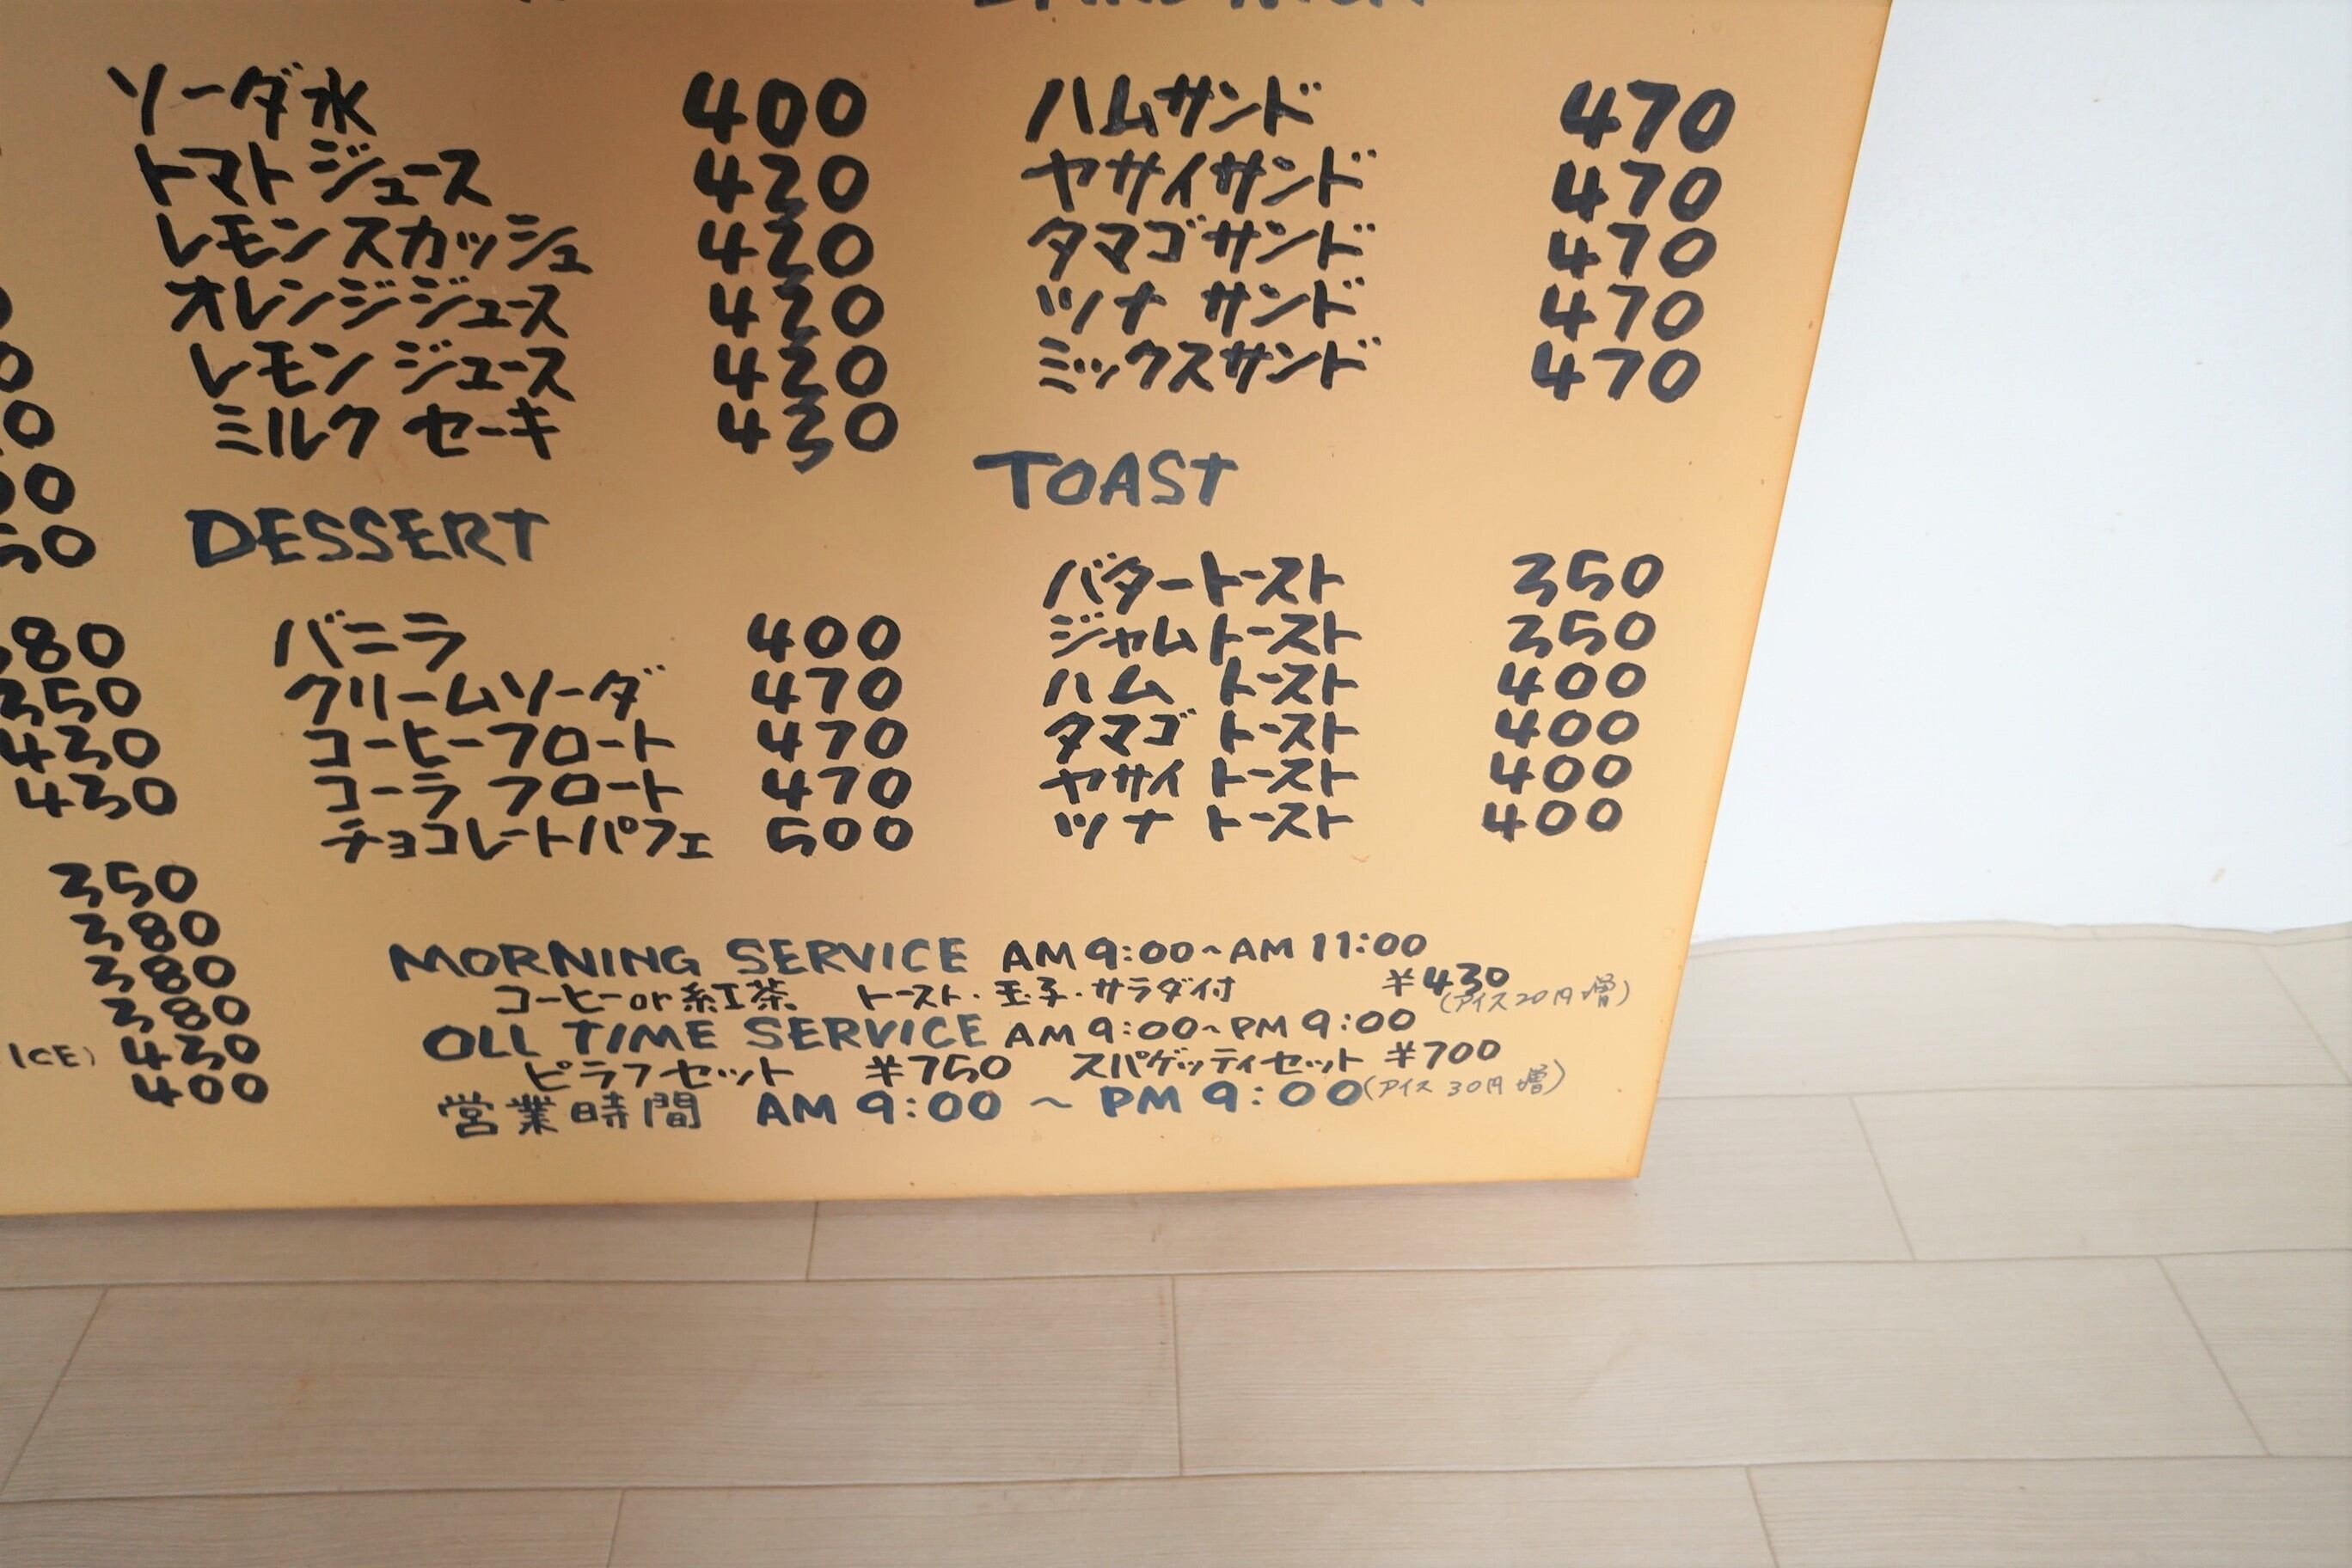 ソーダ水 400
トマトジュース 420
レモンスカッシュ 420
オレンジジュース 420
レモンジュース 420
ミルクセーキ 430
DESSERT
バニラ 400
クリームソーダ 470
コーヒーフロート 470
コーラフロート 470
チョコレートパフェ 500
ハムサンド 470
ヤサイサンド 470
タマゴサンド 470
ツナサンド 470
ミックスサンド 470
TOAST
バタートースト 350
ジャムトースト 350
ハムトースト 400
タマゴトースト 400
ヤサイトースト 400
ツナトースト 400
350
430
430
350
380
380
380
ICE) 430
400
MORNING SERVICE AM 9:00~AM 11:00
コーヒーor紅茶 トースト・玉子・サラダ付 ¥430
(アイス20円増)
OLL TIME SERVICE AM 9:00~PM 9:00
ピラフセット ¥750 スパゲッティセット ¥700
(アイス30円増)
営業時間 AM 9:00 ~ PM 9:00